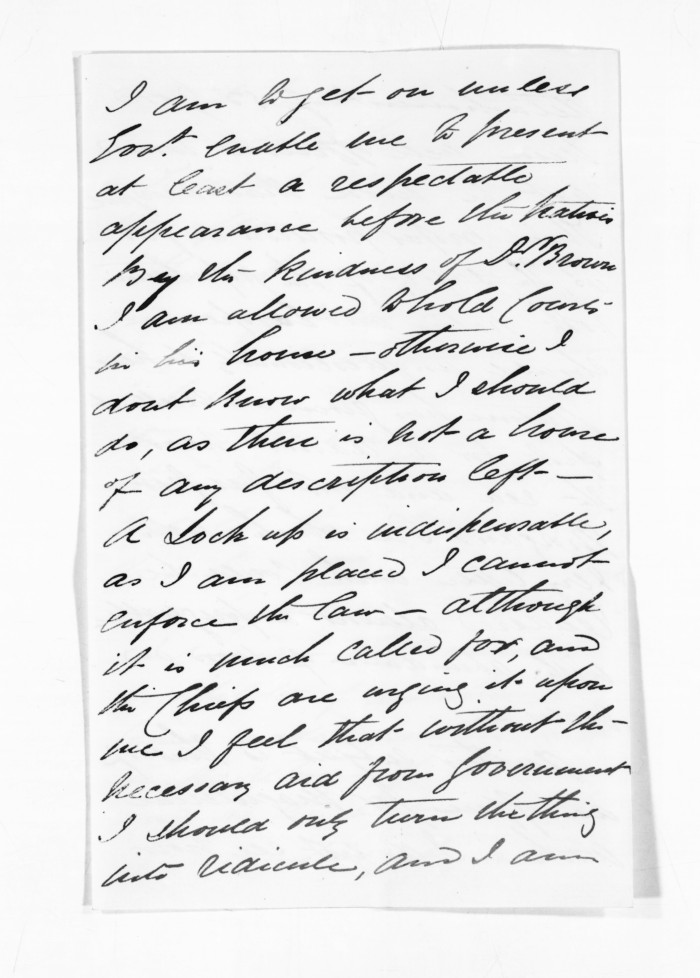 I am to get on unless
Govt. enable me to present
at least a respectable
appearance before the Natives
By the kindness of Dr. Brown
I am allowed to hold Courts
in his house – otherwise I
dont know what I should
do, as there is not a house
of any description left –
A Lock up is indispensable,
as I am placed I cannot
enforce the law – although
it is much called for, and
the Chiefs are urging it upon
me I feel that without the
necessary aid from Government
I should only turn the thing
into ridicule, and I am